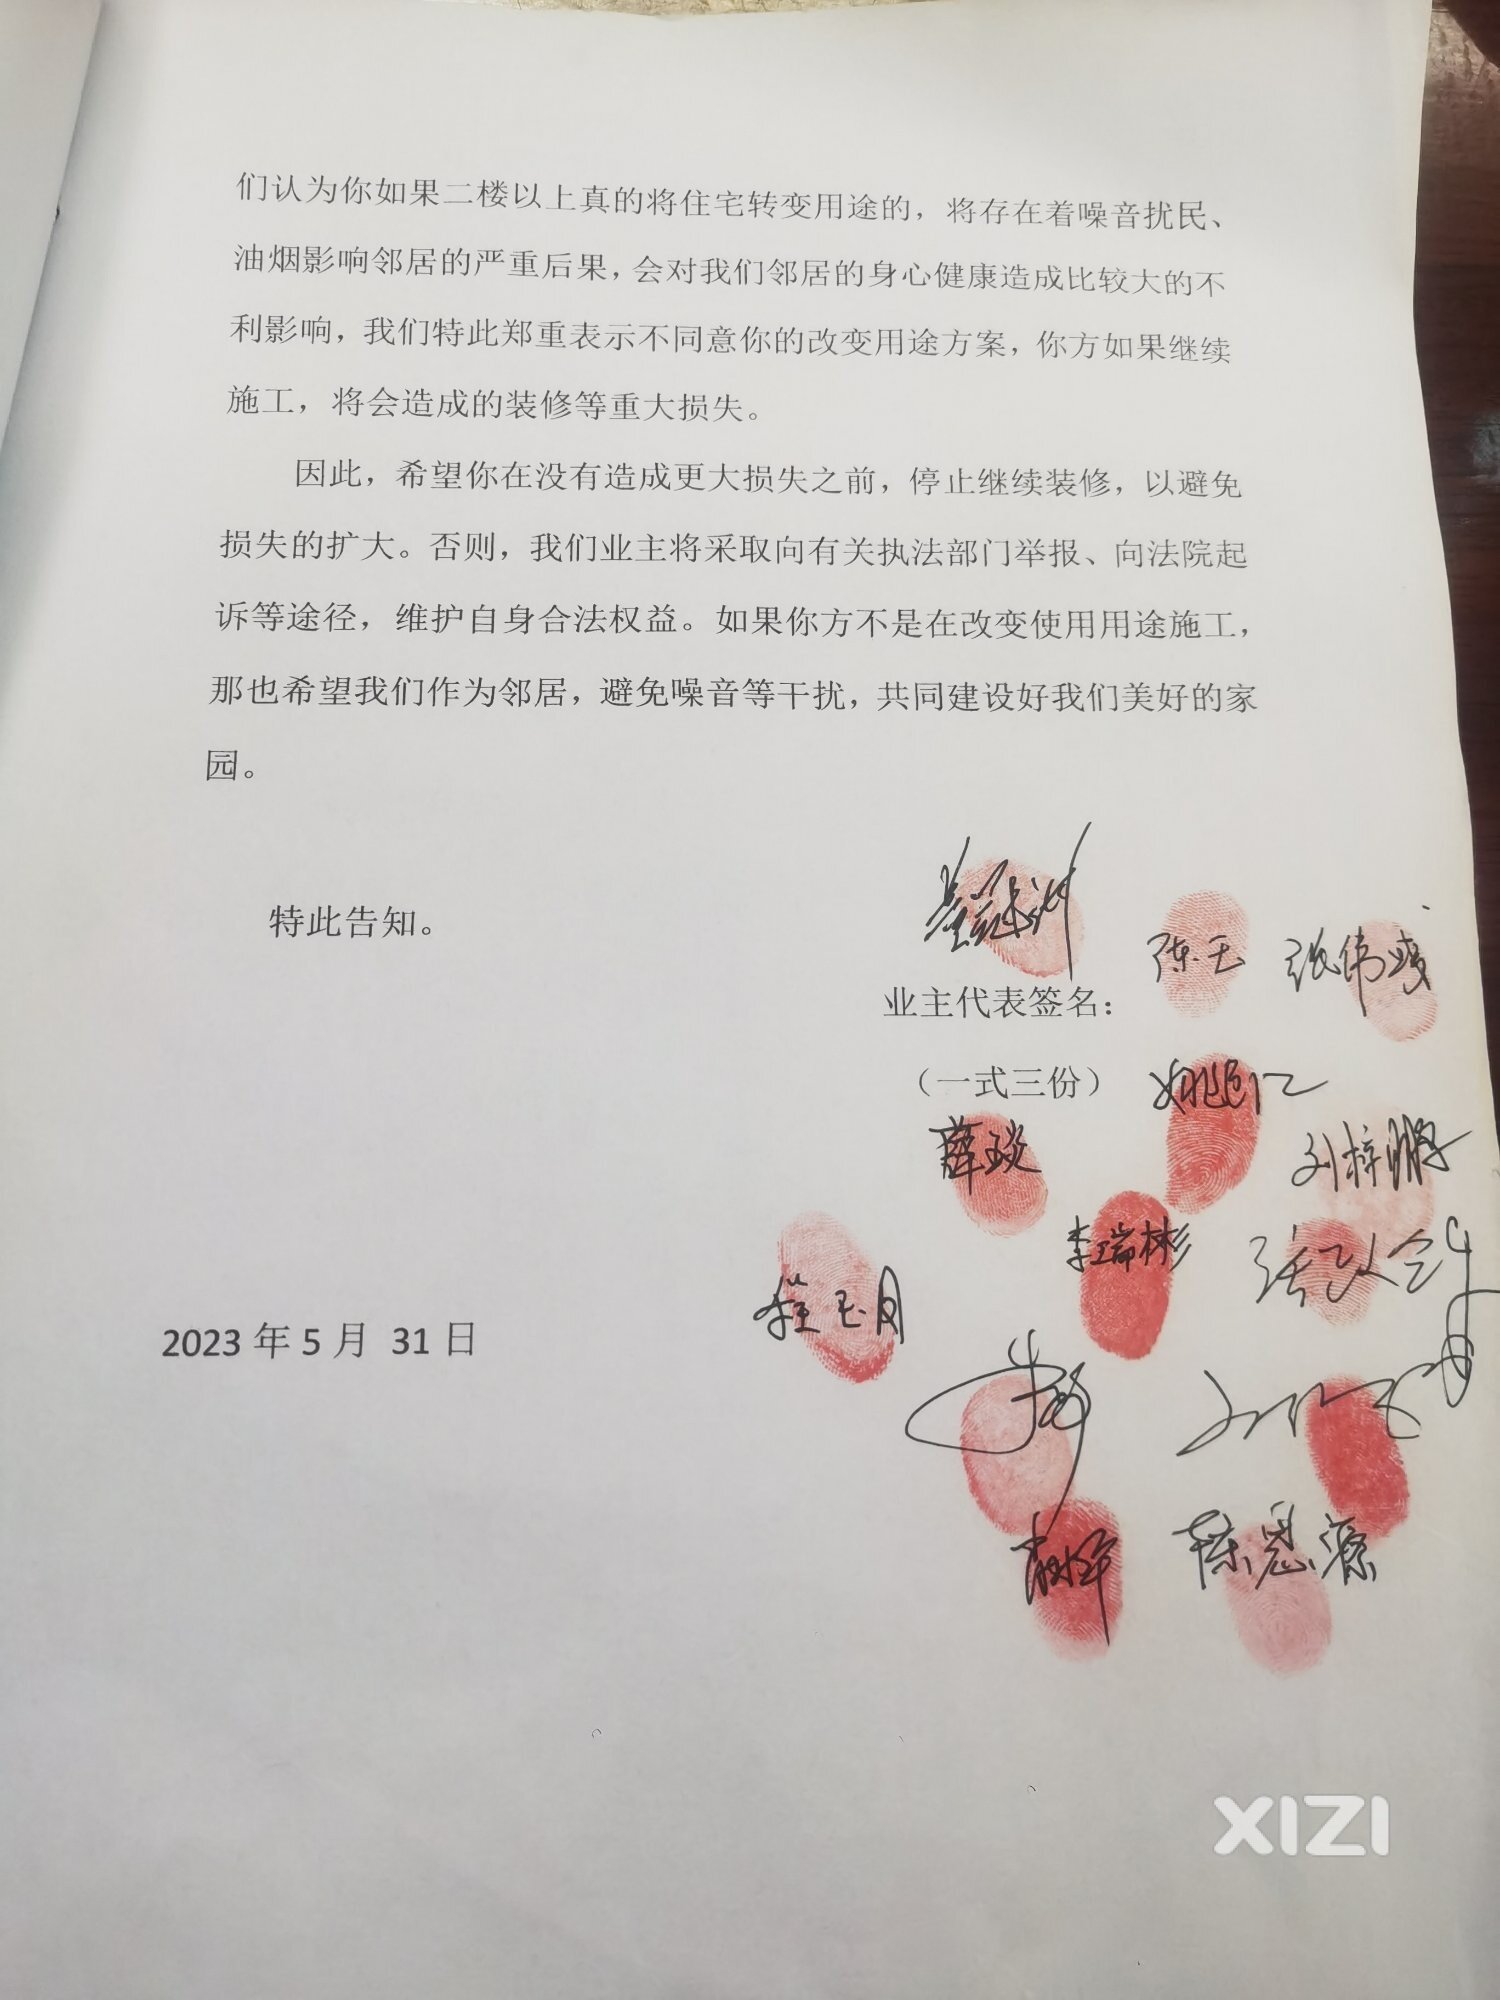 们认为你如果二楼以上真的将住宅转变用途的，将存在着噪音扰民、
油烟影响邻居的严重后果，会对我们邻居的身心健康造成比较大的不
利影响，我们特此郑重表示不同意你的改变用途方案，你方如果继续
施工，将会造成的装修等重大损失。
因此，希望你在没有造成更大损失之前，停止继续装修，以避免
损失的扩大。否则，我们业主将采取向有关执法部门举报、向法院起
诉等途径，维护自身合法权益。如果你方不是在改变使用用途施工，
那也希望我们作为邻居，避免噪音等干扰，共同建设好我们美好的家
园。
特此告知。
陈玉 张伟
业主代表签名：
（一式三份）
薛琰 刘梓鹏
李瑞彬
玉月
2023 年 5 月 31 日
陈思源
XIZI